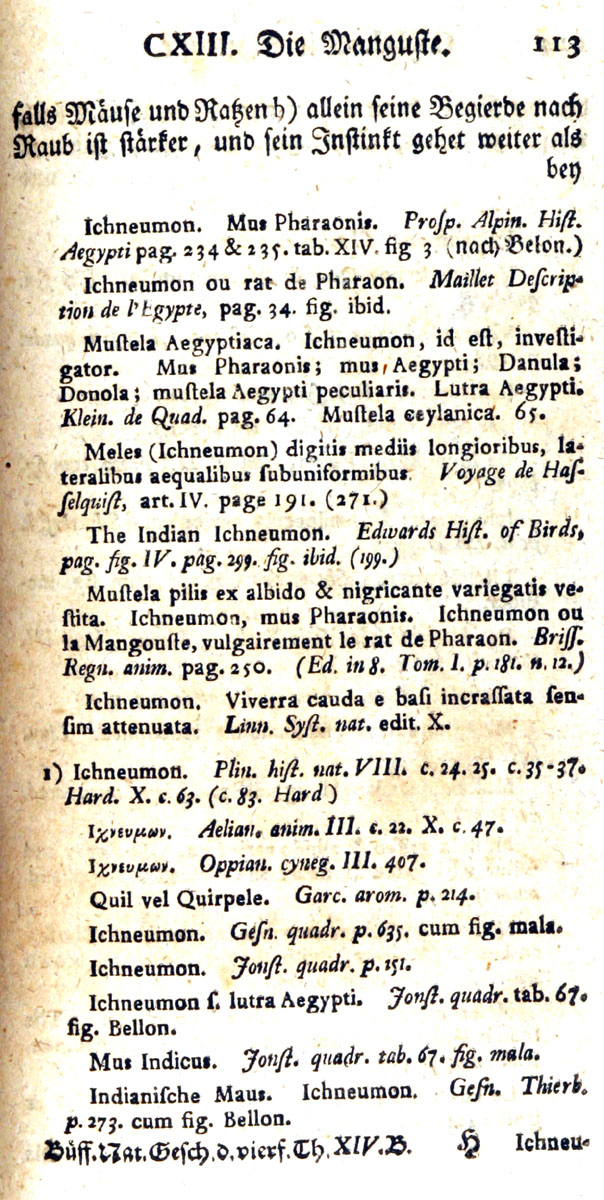 CXIII. Die Manguste. 113
falls Mäuse und Ratzen h) allein seine Begierde nach
Raub ist stärker, und sein Instinkt gehet weiter als
bey
Ichneumon. Mus Pharaonis. Proſp. Alpin. Hiſt.
Aegypti pag. 234 & 235. tab. XIV. fig 3 (nach Belon.)
Ichneumon ou rat de Pharaon. Maillet Deſcrip-
tion de l'Egypte, pag. 34. fig. ibid.
Muſtela Aegyptiaca. Ichneumon, id eſt, inveſti-
gator. Mus Pharaonis; mus, Aegypti; Danula;
Donola; muſtela Aegypti peculiaris. Lutra Aegypti.
Klein. de Quad. pag. 64. Muſtela ceylanica. 65.
Meles (Ichneumon) digitis mediis longioribus, la-
teralibus aequalibus ſubuniformibus. Voyage de Haſ-
ſelquiſt, art. IV. page 191. (271.)
The Indian Ichneumon. Edwards Hiſt. of Birds,
pag. fig. IV. pag. 299. fig. ibid. (199.)
Muſtela pilis ex albido & nigricante variegatis ve-
ſtita. Ichneumon, mus Pharaonis. Ichneumon ou
la Mangouſte, vulgairement le rat de Pharaon. Briſſ.
Regn. anim. pag. 250. (Ed. in 8. Tom. I. p. 181. n. 12.)
Ichneumon. Viverra cauda e baſi incraſſata ſen-
ſim attenuata. Linn. Syſt. nat. edit. X.
1) Ichneumon. Plin. hiſt. nat. VIII. c. 24. 25. c. 35-37.
Hard. X. c. 63. (c. 83. Hard)
Ιχνευμων. Aelian. anim. III. c. 22. X. c. 47.
Ιχνευμων. Oppian. cyneg. III. 407.
Quil vel Quirpele. Garc. arom. p. 214.
Ichneumon. Geſn. quadr. p. 635. cum fig. mala.
Ichneumon. Jonſt. quadr. p. 151.
Ichneumon ſ. lutra Aegypti. Jonſt. quadr. tab. 67.
fig. Bellon.
Mus Indicus. Jonſt. quadr. tab. 67. fig. mala.
Indianiſche Maus. Ichneumon. Geſn. Thierb.
p. 273. cum fig. Bellon.
Büff. Nat. Gesch. d. vierf. Th. XIV. B. H Ichneu-